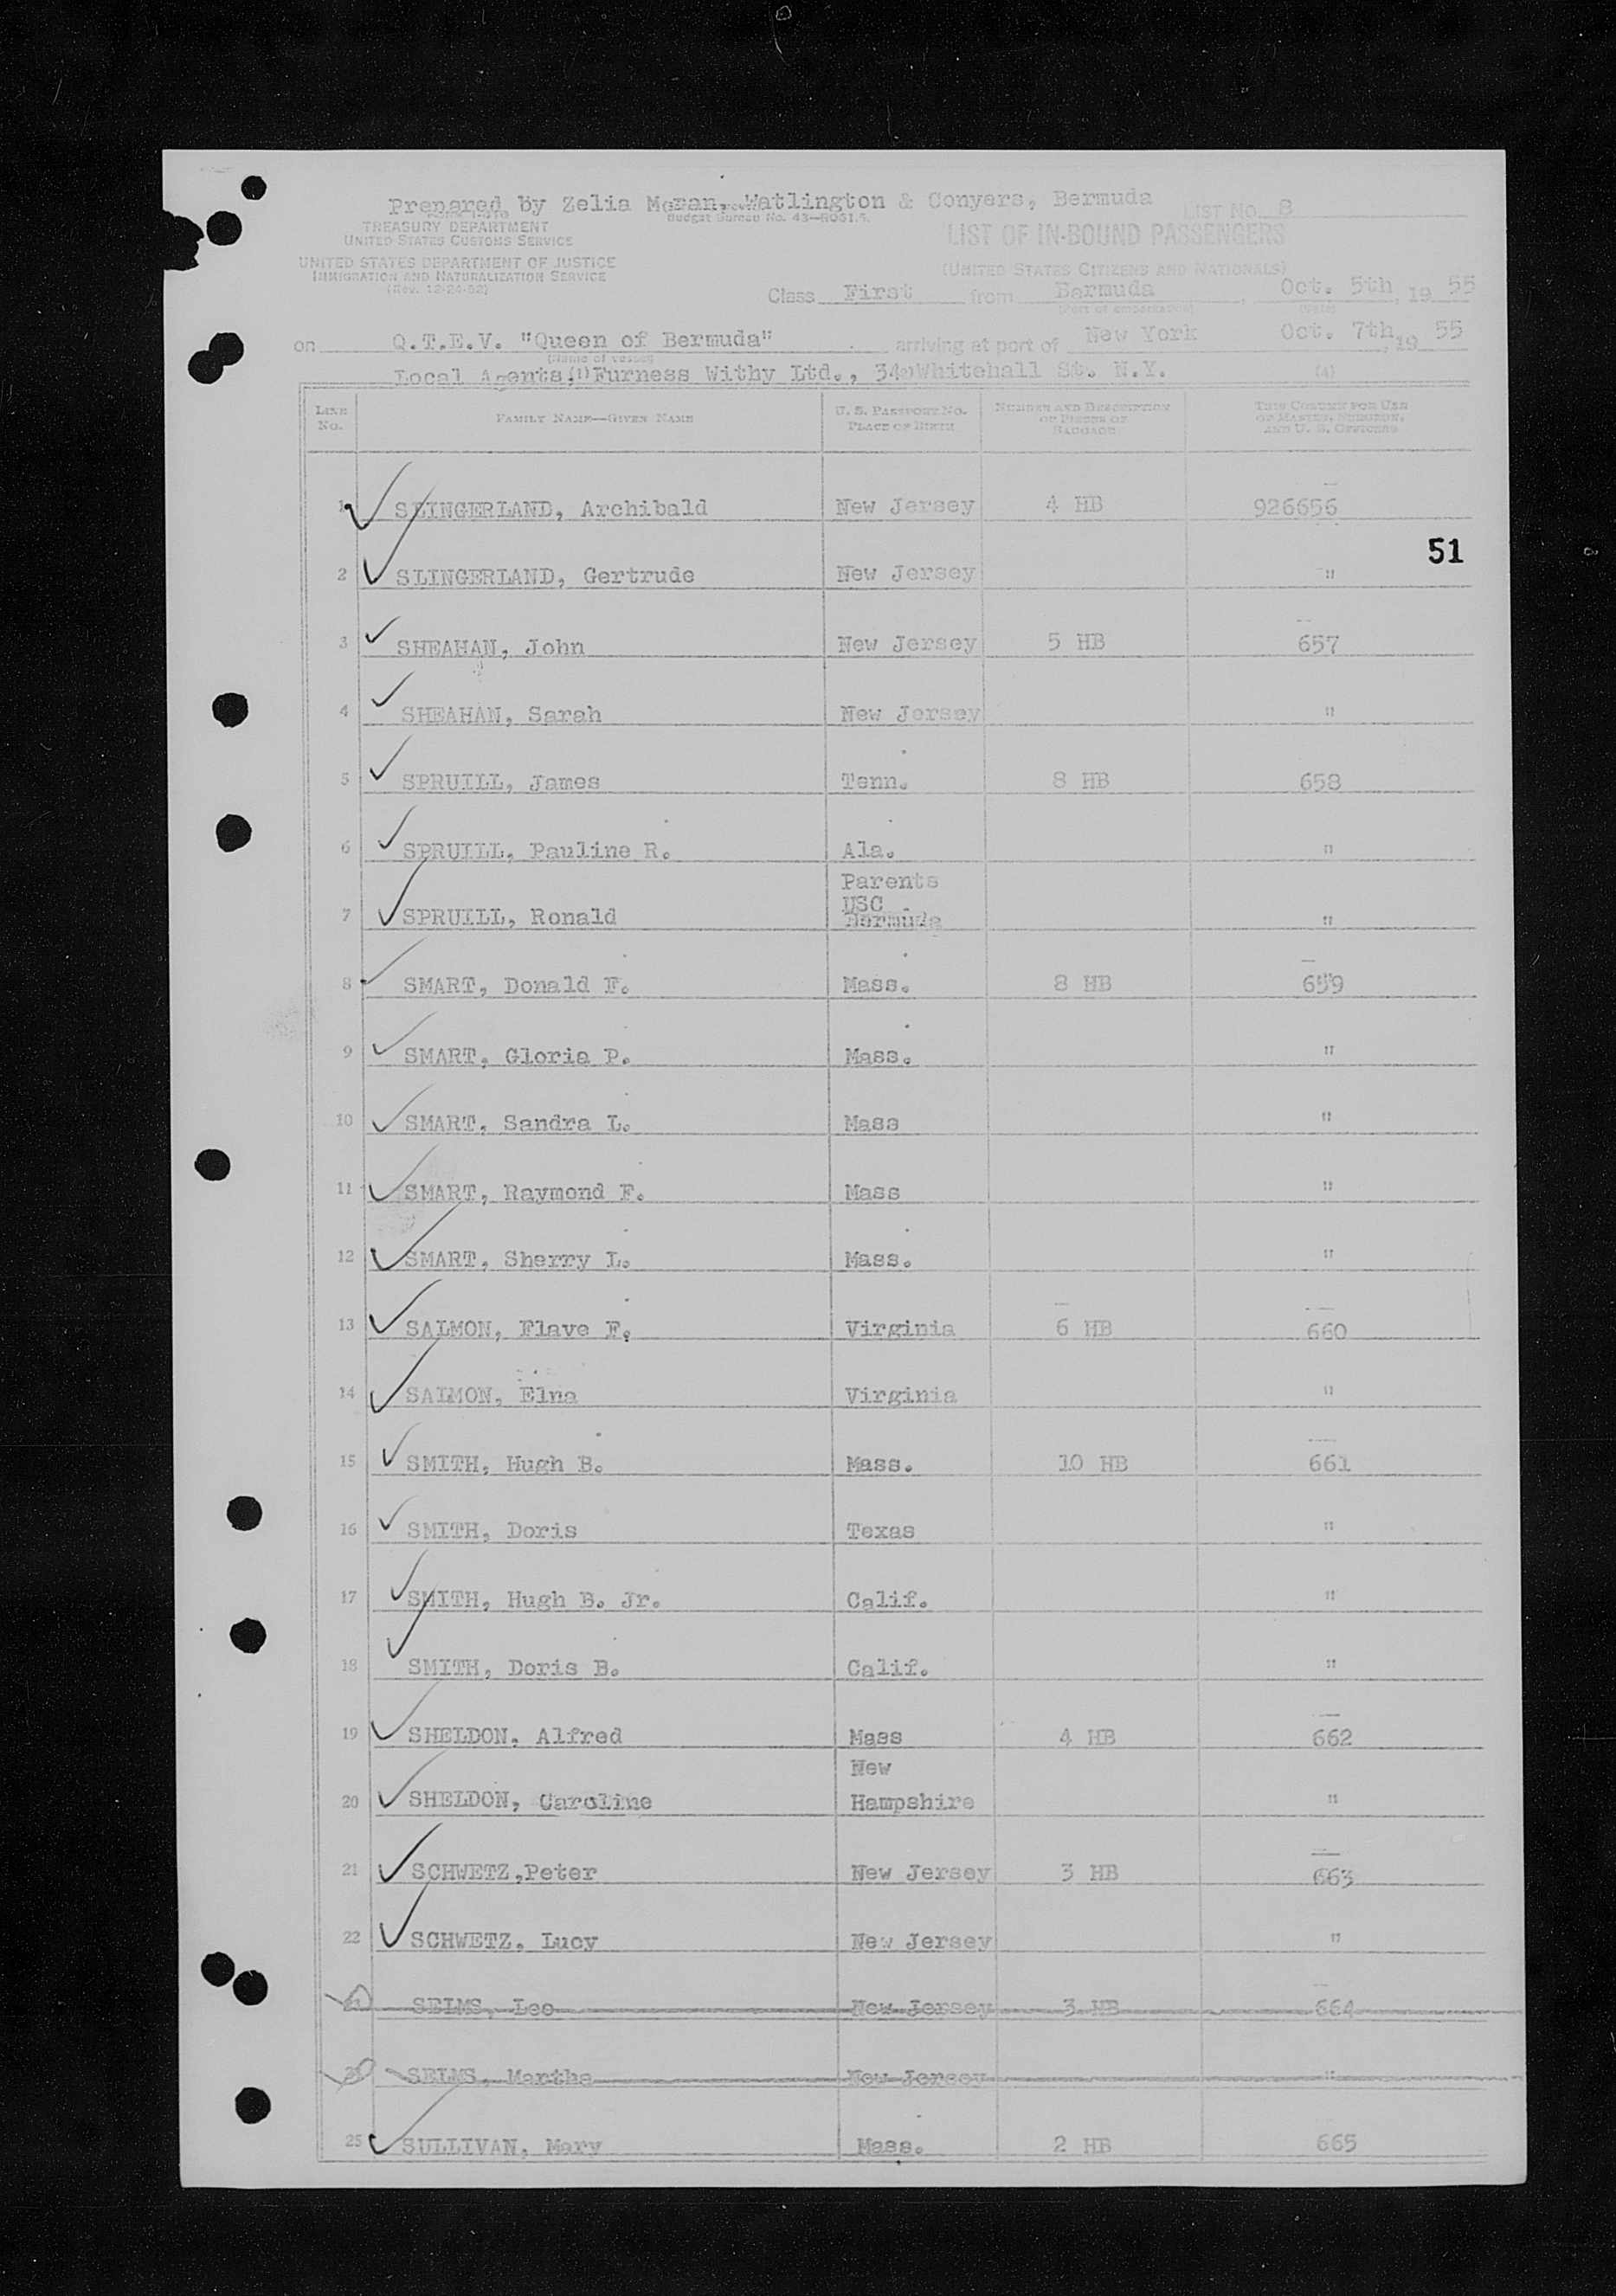 Prepared by Zelia Moran, Watlington & Conyers, Bermuda
Budget Bureau No. 43—R061.5.
LIST No. 8
TREASURY DEPARTMENT
UNITED STATES CUSTOMS SERVICE
LIST OF IN-BOUND PASSENGERS
UNITED STATES DEPARTMENT OF JUSTICE
IMMIGRATION AND NATURALIZATION SERVICE
(Rev. 12-24-52)
(UNITED STATES CITIZENS AND NATIONALS)
Class First from Bermuda, Oct. 5th, 19 55
(Port of embarkation) (Date)
on Q.T.E.V. "Queen of Bermuda" arriving at port of New York Oct. 7th, 19 55
(Name of vessel)
Local Agents, Furness Withy Ltd., 34 Whitehall St. N.Y.
(1) (4)
LINE No. FAMILY NAME—GIVEN NAME U. S. PASSPORT NO. PLACE OF BIRTH NUMBER AND DESCRIPTION OF PIECES OF BAGGAGE THIS COLUMN FOR USE OF MASTER, SURGEON, AND U. S. OFFICERS
1 SLINGERLAND, Archibald New Jersey 4 HB 926656
51
2 SLINGERLAND, Gertrude New Jersey "
3 SHEAHAN, John New Jersey 5 HB 657
4 SHEAHAN, Sarah New Jersey "
5 SPRUILL, James Tenn. 8 HB 658
6 SPRUILL, Pauline R. Ala. "
Parents
USC
7 SPRUILL, Ronald Bermuda "
8 SMART, Donald F. Mass. 8 HB 659
9 SMART, Gloria P. Mass. "
10 SMART, Sandra L. Mass "
11 SMART, Raymond F. Mass "
12 SMART, Sherry L. Mass. "
13 SALMON, Flave F. Virginia 6 HB 660
14 SALMON, Elna Virginia "
15 SMITH, Hugh B. Mass. 10 HB 661
16 SMITH, Doris Texas "
17 SMITH, Hugh B. Jr. Calif. "
18 SMITH, Doris B. Calif. "
19 SHELDON, Alfred Mass 4 HB 662
New
20 SHELDON, Caroline Hampshire "
21 SCHWETZ,Peter New Jersey 3 HB 663
22 SCHWETZ, Lucy New Jersey "
SELMS, Leo New Jersey 3 HB 664
SELMS, Martha New Jersey "
25 SULLIVAN, Mary Mass. 2 HB 665